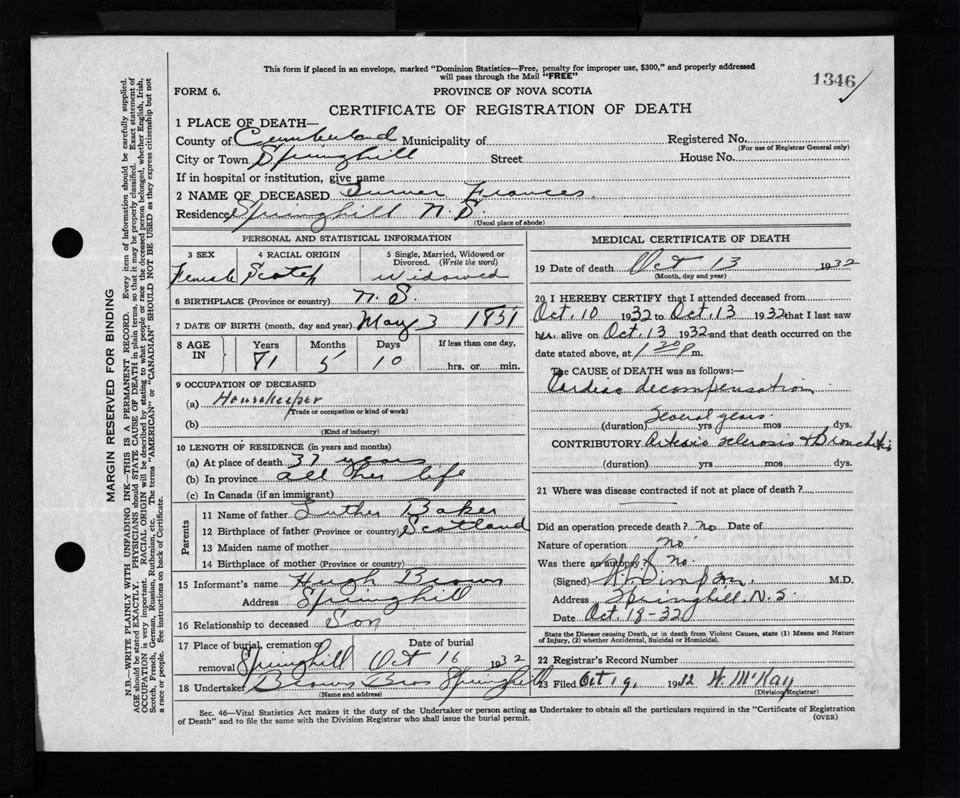 This form if placed in an envelope, marked "Dominion Statistics—Free, penalty for improper use, $300," and properly addressed
will pass through the Mail "FREE"
1346
FORM 6.
PROVINCE OF NOVA SCOTIA
CERTIFICATE OF REGISTRATION OF DEATH
1 PLACE OF DEATH—
County of Cumberland Municipality of Registered No.
(For use of Registrar General only)
City or Town Springhill Street House No.
If in hospital or institution, give name
2 NAME OF DECEASED Turner Frances
Residence Springhill N.S.
(Usual place of abode)
PERSONAL AND STATISTICAL INFORMATION
3 SEX 4 RACIAL ORIGIN 5 Single, Married, Widowed or
Divorced. (Write the word)
Female Scotch Widowed
6 BIRTHPLACE (Province or country) N.S.
7 DATE OF BIRTH (month, day and year) May 3 1851
8 AGE IN Years Months Days If less than one day,
81 5 10 hrs. or min.
9 OCCUPATION OF DECEASED
(a) Housekeeper
(Trade or occupation or kind of work)
(b)
(Kind of industry)
10 LENGTH OF RESIDENCE (in years and months)
(a) At place of death 37 years
(b) In province all her life
(c) In Canada (if an immigrant)
Parents
11 Name of father Luther Baker
12 Birthplace of father (Province or country) Scotland
13 Maiden name of mother
14 Birthplace of mother (Province or country)
15 Informant's name Hugh Brown
Address Springhill
16 Relationship to deceased Son
17 Place of burial, cremation or Date of burial
removal Springhill Oct 16 1932
18 Undertaker Browns Bros Springhill
(Name and address)
MEDICAL CERTIFICATE OF DEATH
19 Date of death Oct 13 1932
(Month, day and year)
20 I HEREBY CERTIFY that I attended deceased from
Oct. 10 1932 to Oct. 13 1932 that I last saw
her alive on Oct. 13 1932 and that death occurred on the
date stated above, at 1 30 P m.
The CAUSE of DEATH was as follows:—
Cardiac decompensation
Several years
(duration) yrs mos dys.
CONTRIBUTORY Arterio sclerosis + Bronchitis
(duration) yrs mos dys.
21 Where was disease contracted if not at place of death?
Did an operation precede death? no Date of
Nature of operation no
Was there an autopsy? no.
(Signed) M.D.
Address Springhill, N.S.
Date Oct. 18-32
State the Disease causing Death, or in death from Violent Causes, state (1) Means and Nature
of Injury, (2) whether Accidental, Suicidal or Homicidal.
22 Registrar's Record Number
23 Filed Oct 19, 1932 W. McKay
(Division Registrar)
Sec. 46—Vital Statistics Act makes it the duty of the Undertaker or person acting as Undertaker to obtain all the particulars required in the "Certificate of Registration
of Death" and to file the same with the Division Registrar who shall issue the burial permit.
(OVER)
MARGIN RESERVED FOR BINDING
N.B.—WRITE PLAINLY WITH UNFADING INK—THIS IS A PERMANENT RECORD. Every item of information should be carefully supplied.
AGE should be stated EXACTLY. PHYSICIANS should STATE CAUSE OF DEATH in plain terms, so that it may be properly classified. Exact statement of
OCCUPATION is very important. RACIAL ORIGIN will be described by stating to what people or race the deceased person belonged, whether English, Irish,
Scotch, French, German, Russian, Ruthenian, etc. The terms "AMERICAN" or "CANADIAN" SHOULD NOT BE USED as they express citizenship but not
a race or people. See instructions on back of Certificate.